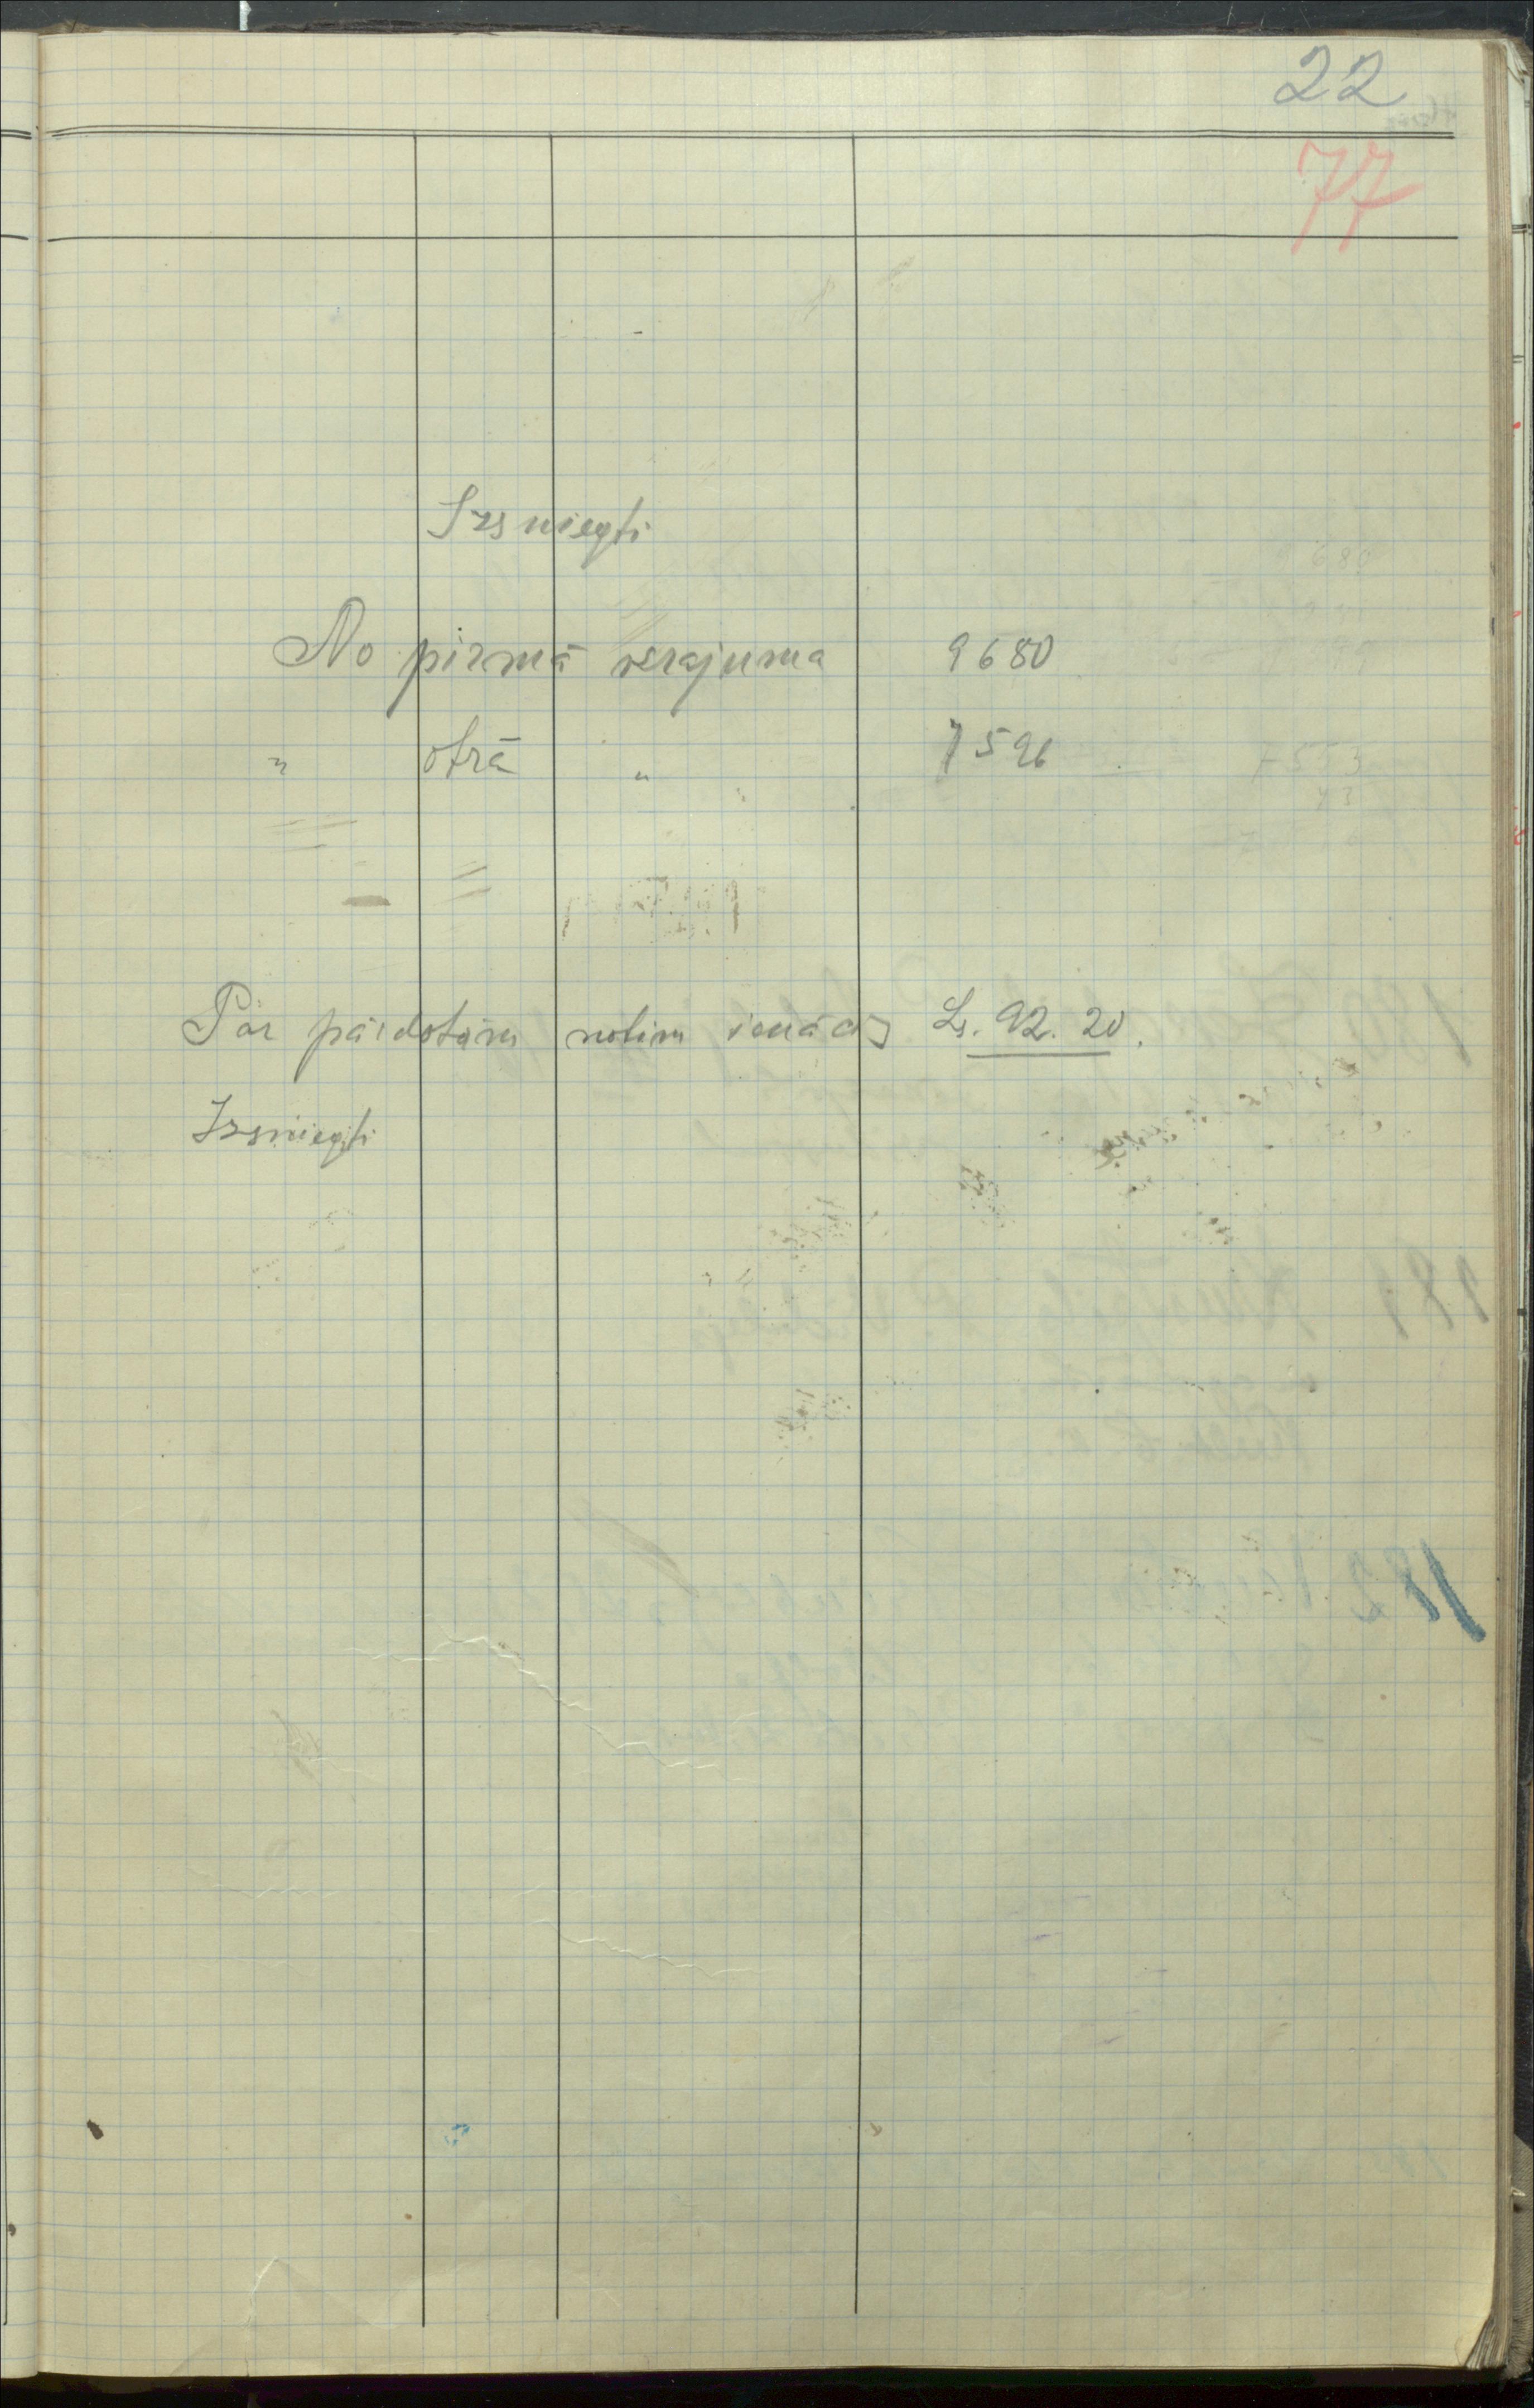 22
77
Izsniegti
No pirmā vērajuma 9680
" otrā " 7596
Par pārdotām notīm ienācis Ls. 92. 20.
Izsniegti